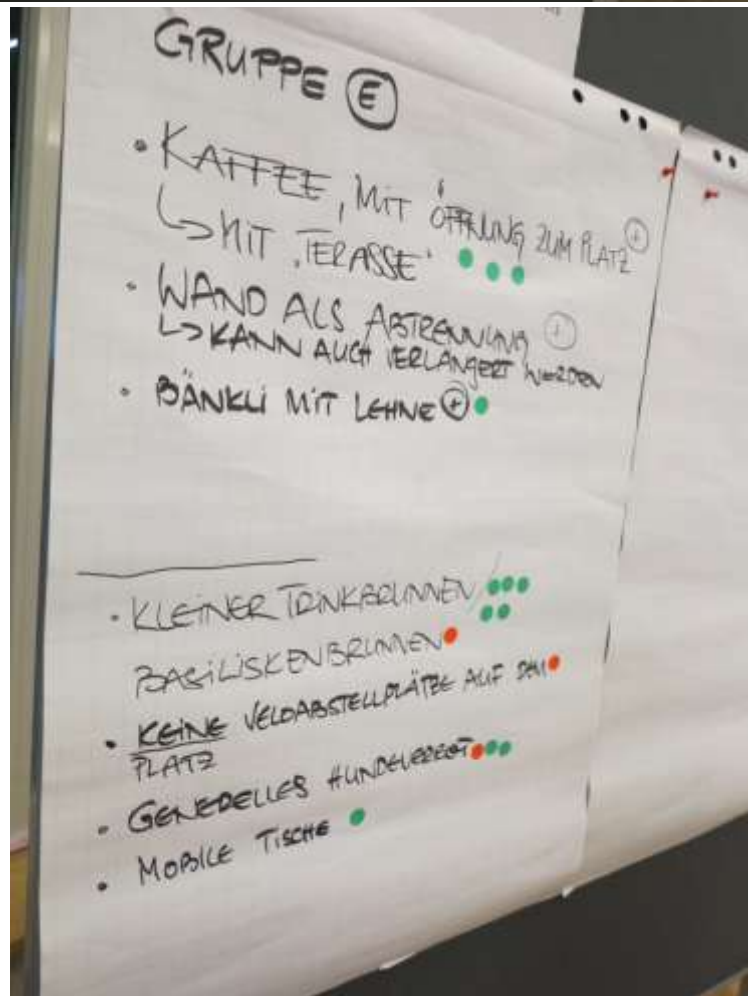 GRUPPE E
• KAFFEE, MIT ÖFFNUNG ZUM PLATZ +
↳ MIT "TERASSE"
• WAND ALS ABTRENNUNG +
↳ KANN AUCH VERLÄNGERT WERDEN
• BÄNKLI MIT LEHNE +
• KLEINER TRINKBRUNNEN /
BASILISKENBRUNNEN
• KEINE VELOABSTELLPLÄTZE AUF DEM
PLATZ
• GENERELLES HUNDEVERBOT
• MOBILE TISCHE